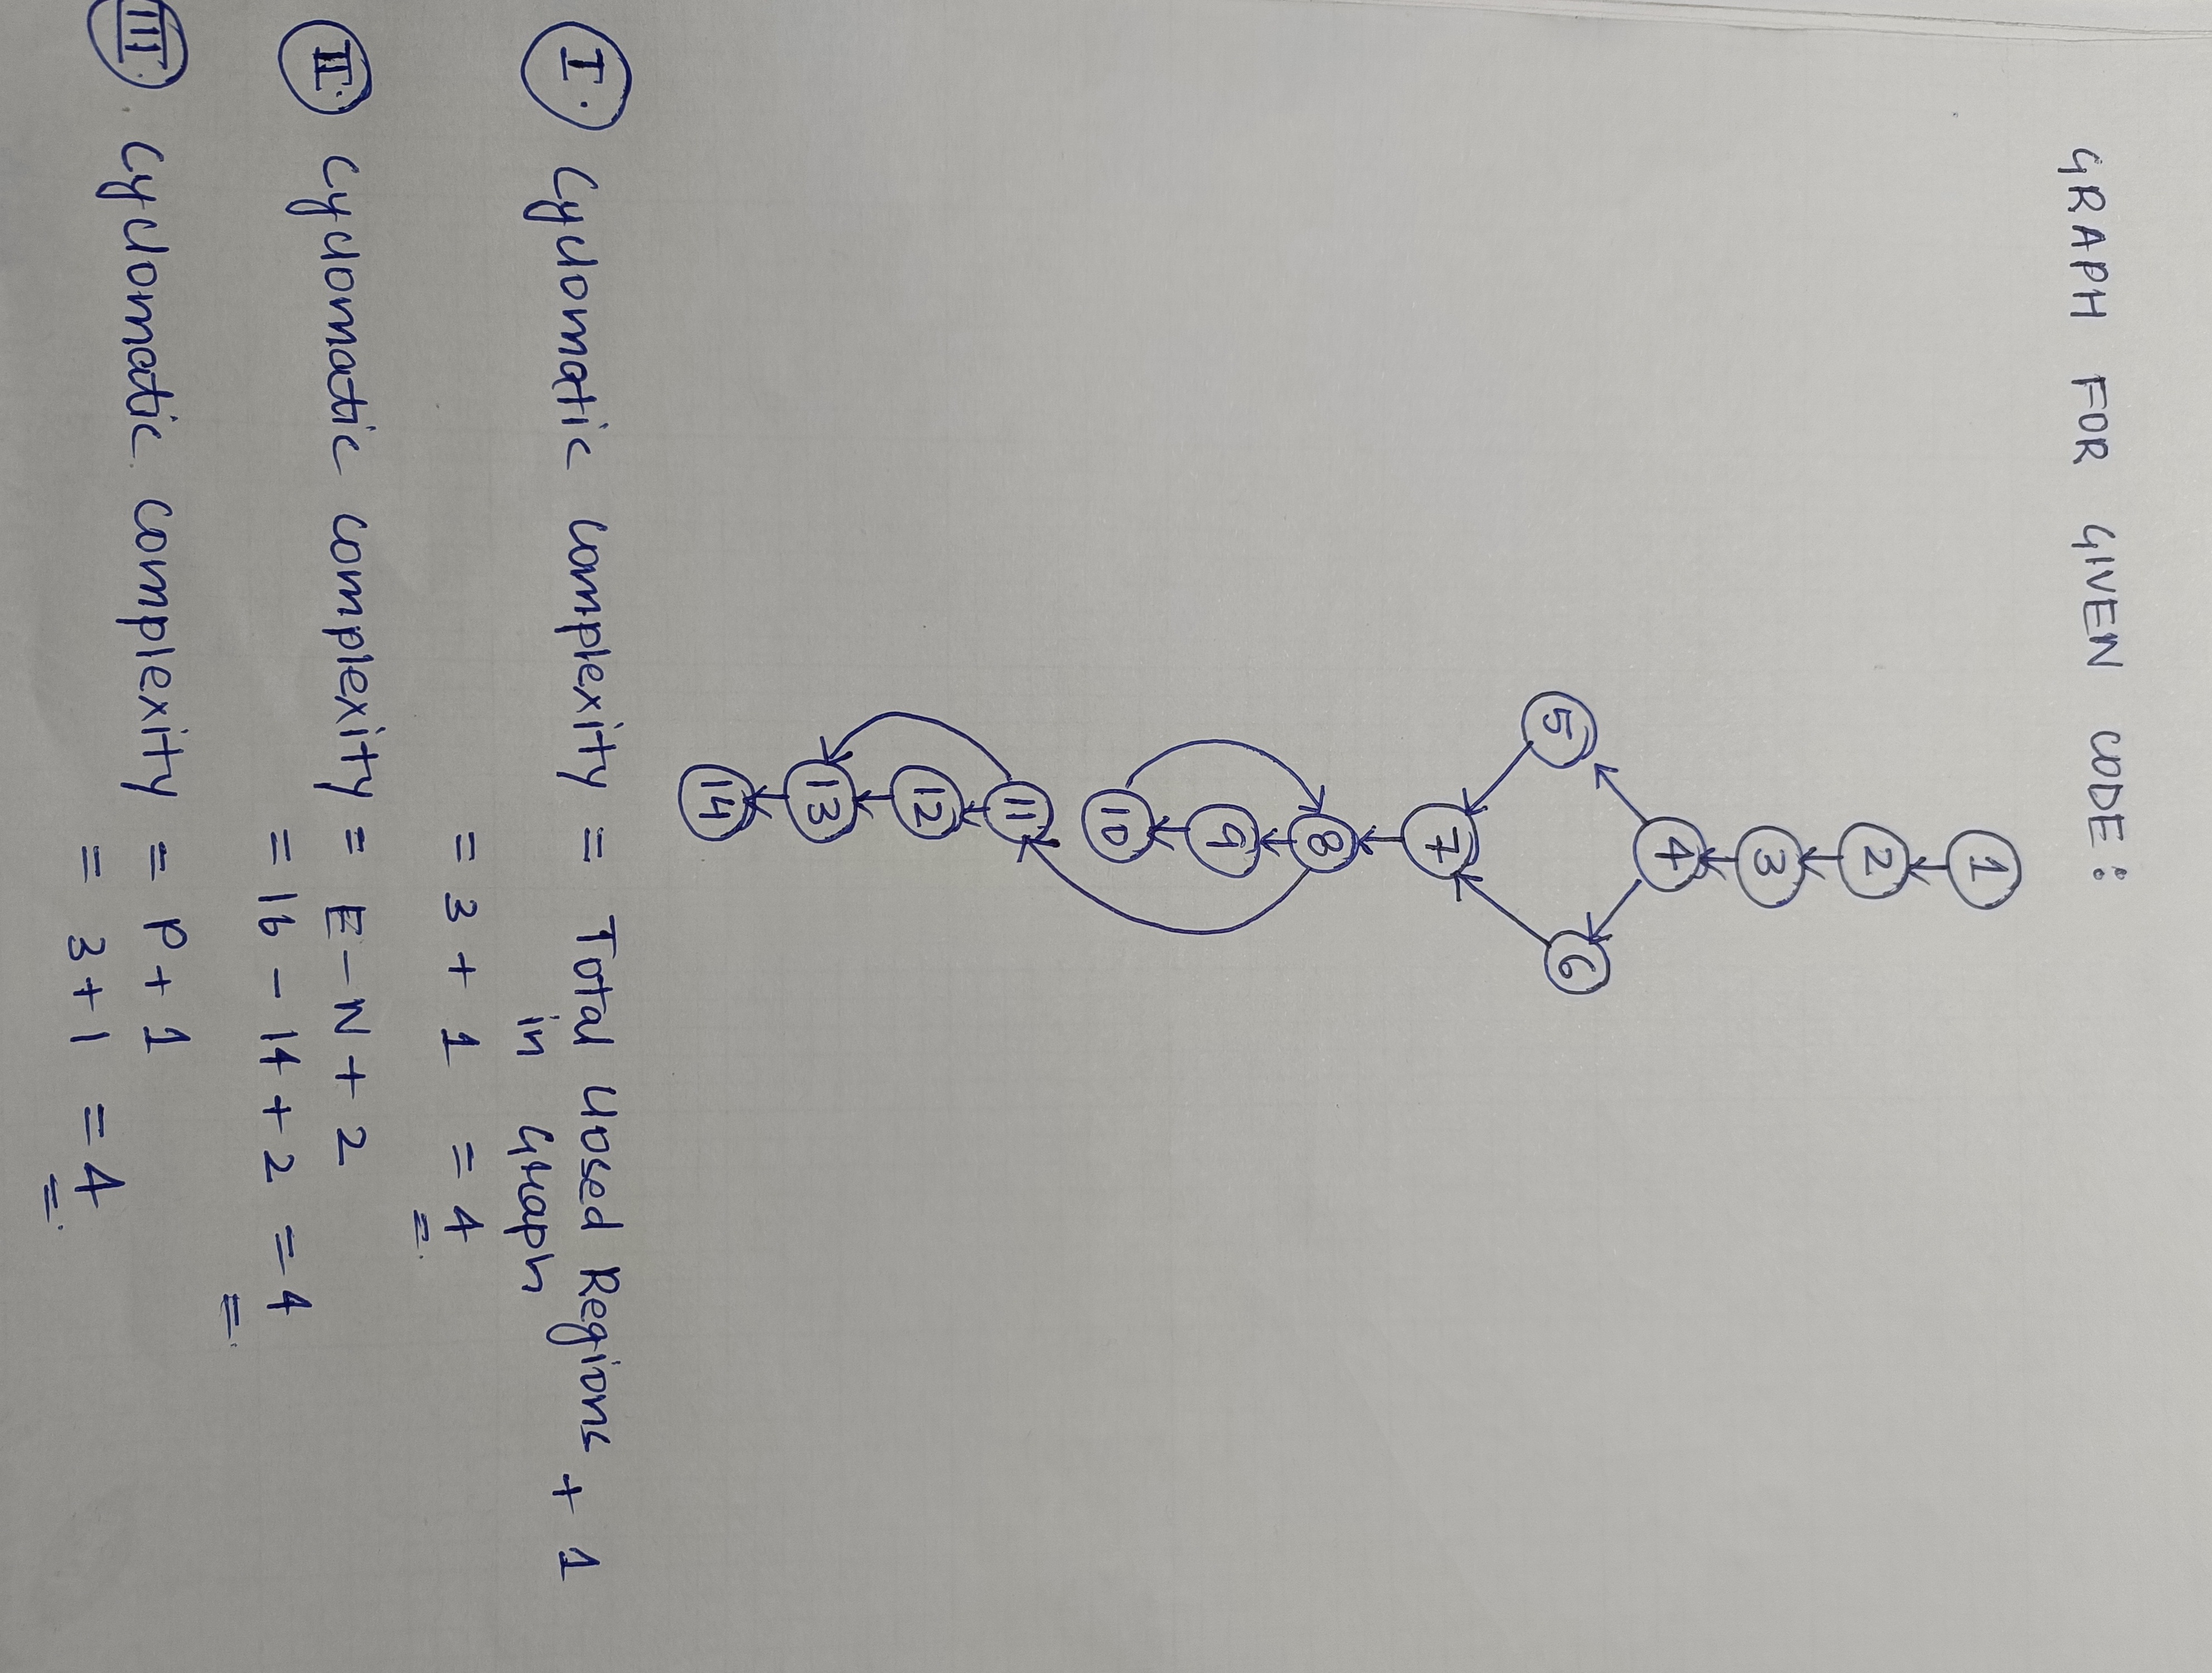 GRAPH FOR GIVEN CODE:
1
2
3
4
5
6
7
8
9
10
11
12
13
14
I. Cyclomatic complexity = Total Closed Regions + 1
in Graph
= 3 + 1 = 4
II. Cyclomatic complexity = E - N + 2
= 16 - 14 + 2 = 4
III. Cyclomatic complexity = P + 1
= 3 + 1 = 4